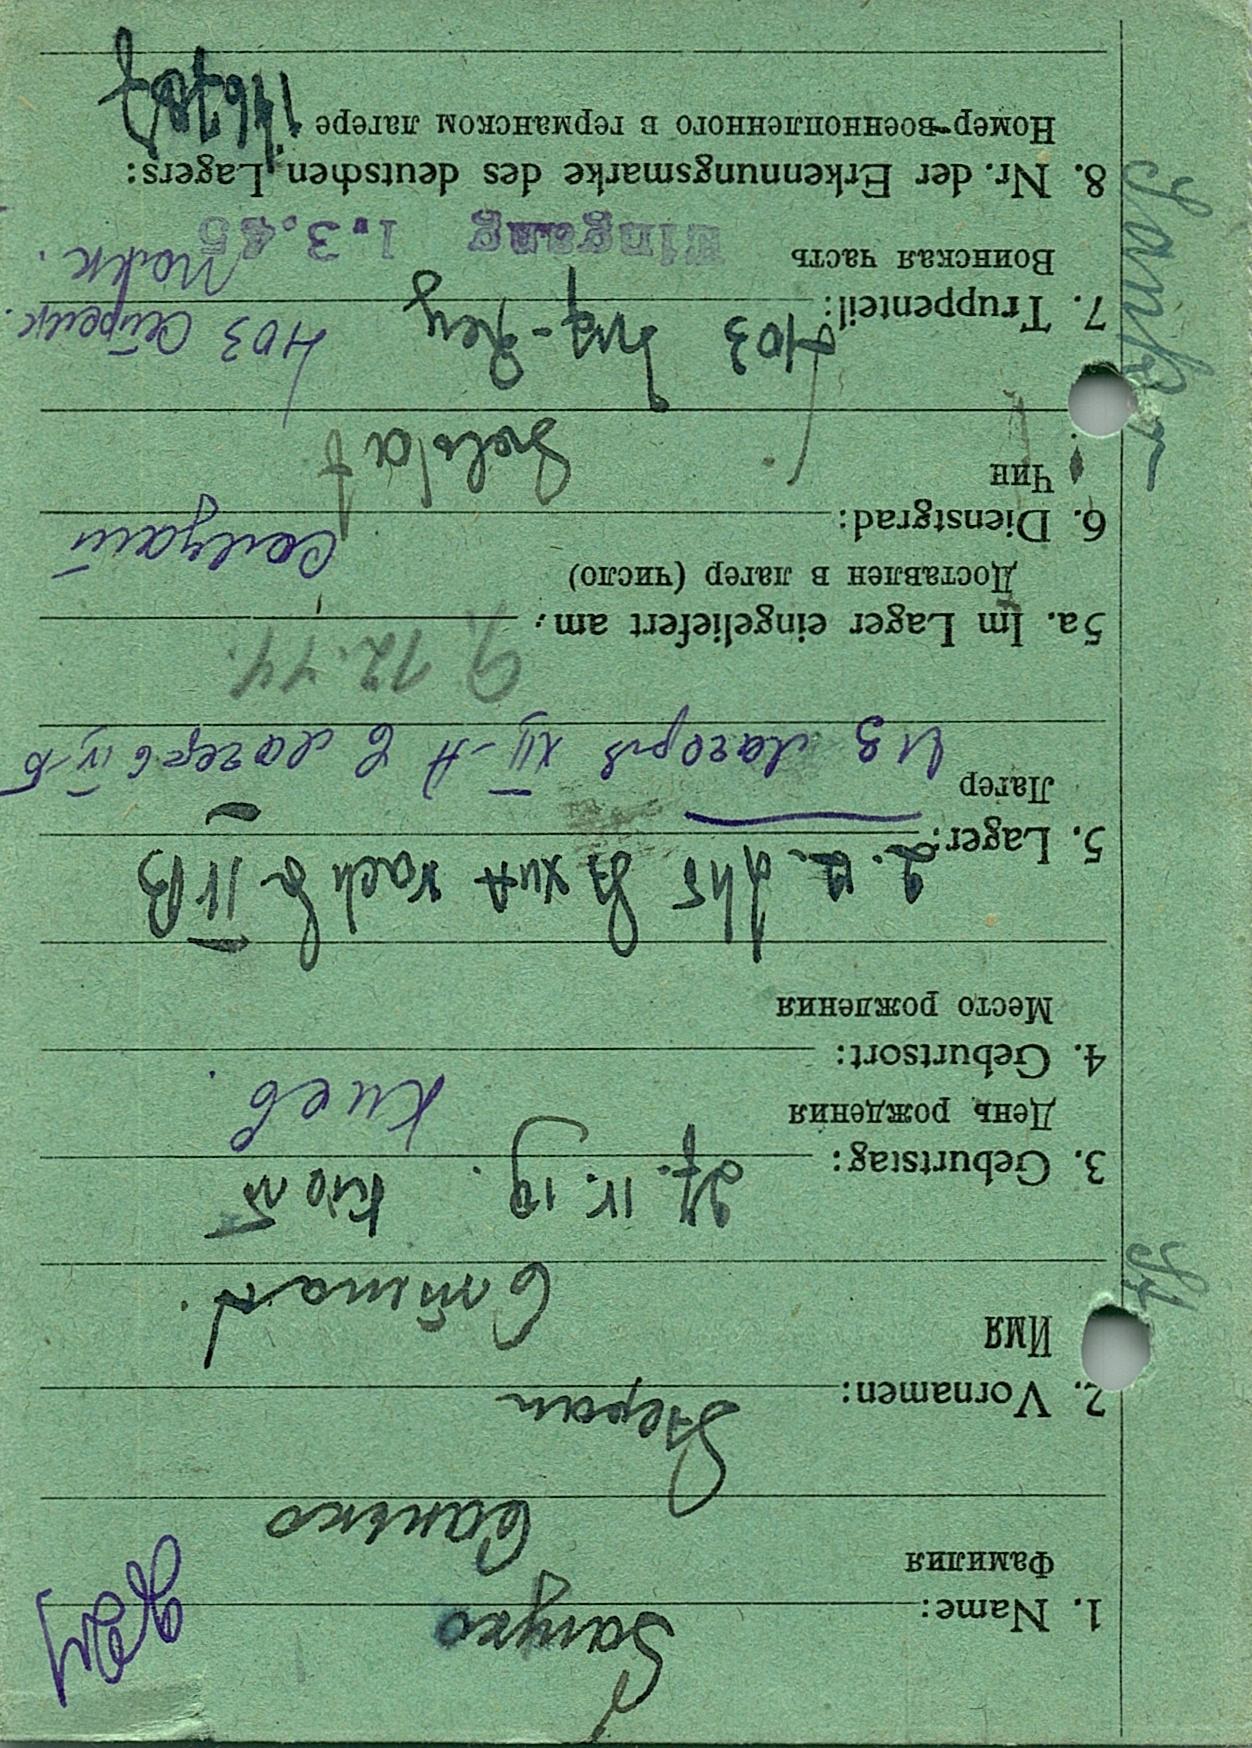 1. Name: Sanyko
Фамилия Санько
2. Vornamen: Stepan
Имя Степан.
3. Geburtstag: 27. IV. 19. Kiew
День рождения Киев.
4. Geburtsort:
Место рождения
5. Lager: XII A nach IV B
Лагер Из лагеря XII-А в лагерь IV-Б
5a. Im Lager eingeliefert am: 9. 12. 44.
Доставлен в лагер (число)
6. Dienstgrad: Soldat Солдат
Чин
7. Truppenteil: 403 Inf-Reg 403 Стрелк.
Воинская часть Полк.
Eingang 1.3.45
8. Nr. der Erkennungsmarke des deutschen Lagers:
Номер военнопленного в германском лагере